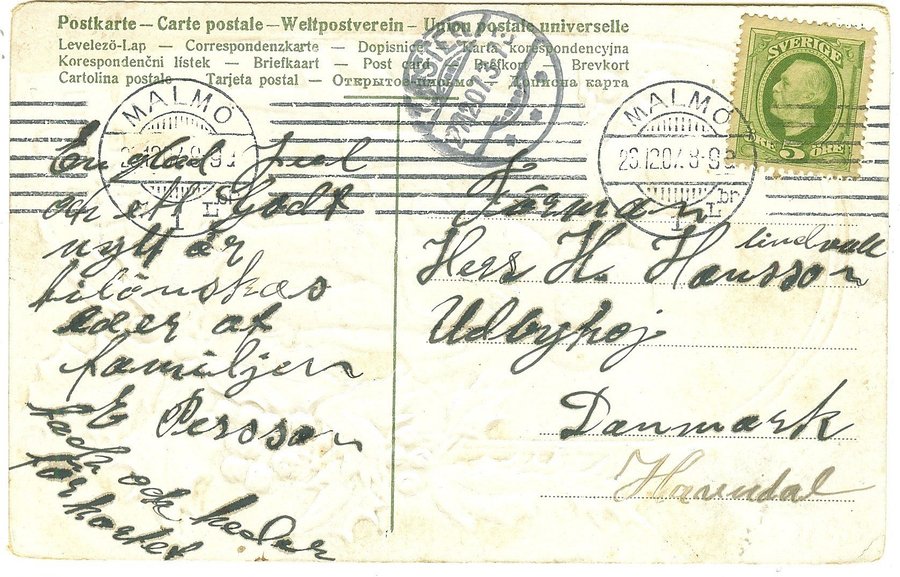 Postkarte — Carte postale — Weltpostverein — Union postale universelle
Levelező-Lap — Correspondenzkarte — Dopisnice — Karta korespondencyjna
Korespondenční lístek — Briefkaart — Post card — Brefkort — Brevkort
Cartolina postale — Tarjeta postal — Открытое письмо — Дописна карта
SVERIGE
5
ÖRE
MALMÖ
1 L
br
MALMÖ
23.12.07. 8-9
1 L
br
En glad jul
och ett Godt
nytt år
tilönskas
eder af
familjen
E Persson
tack och heder
för kortet
Förman
Herr H. Hansson lindvall
Udbyhøj
Danmark
Havndal